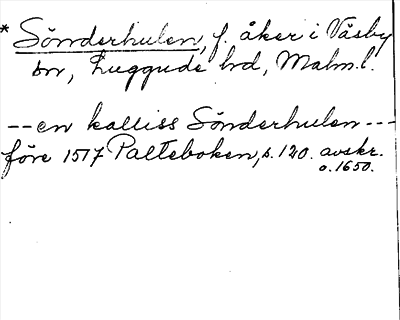 * Sönderhulen, f. åker i Väsby
sn, Luggude hd, Malm.l.
-- en kalliss Sönderhulen ---
före 1517 Palteboken, s. 120. avskr.
o. 1650.